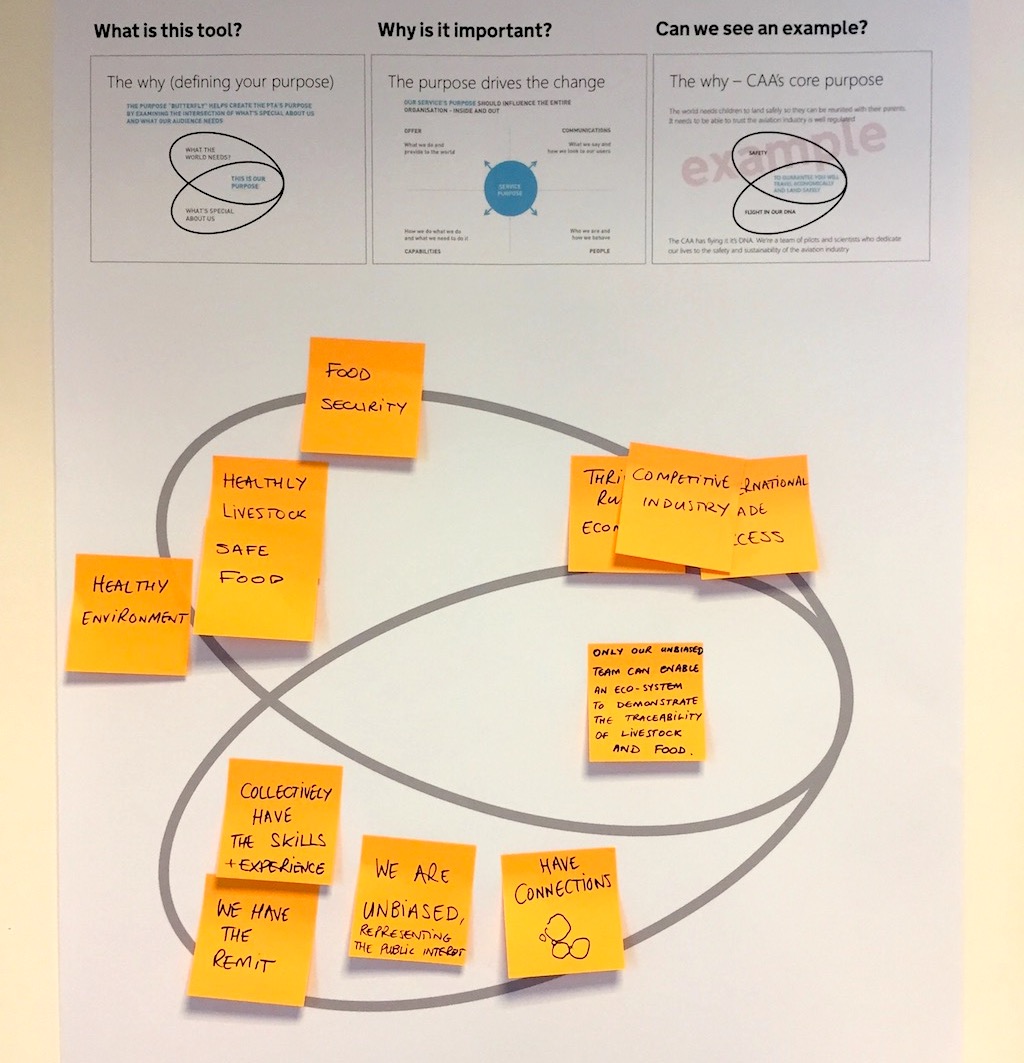 What is this tool?
The why (defining your purpose)
THE PURPOSE "BUTTERFLY" HELPS CREATE THE PTA'S PURPOSE
BY EXAMINING THE INTERSECTION OF WHAT'S SPECIAL ABOUT US
AND WHAT OUR AUDIENCE NEEDS
WHAT THE
WORLD NEEDS?
THIS IS OUR
PURPOSE
WHAT'S SPECIAL
ABOUT US
Why is it important?
The purpose drives the change
OUR SERVICE'S PURPOSE SHOULD INFLUENCE THE ENTIRE
ORGANISATION - INSIDE AND OUT
OFFER
What we do and
provide to the world
COMMUNICATIONS
What we say and
how we look to our users
SERVICE
PURPOSE
How we do what we do
and what we need to do it
CAPABILITIES
Who we are and
how we behave
PEOPLE
Can we see an example?
The why – CAA's core purpose
The world needs children to land safely so they can be reunited with their parents.
It needs to be able to trust the aviation industry is well regulated
example
SAFETY
TO GUARANTEE YOU WILL
TRAVEL ECONOMICALLY
AND LAND SAFELY
FLIGHT IN OUR DNA
The CAA has flying it it's DNA. We're a team of pilots and scientists who dedicate
our lives to the safety and sustainability of the aviation industry
FOOD
SECURITY
HEALTHLY
LIVESTOCK
SAFE
FOOD
HEALTHY
ENVIRONMENT
THRI
RU
ECON
COMPETITIVE
INDUSTRY
RNATIONAL
ADE
CESS
ONLY OUR UNBIASED
TEAM CAN ENABLE
AN ECO-SYSTEM
TO DEMONSTRATE
THE TRACEABILITY
OF LIVESTOCK
AND FOOD.
COLLECTIVELY
HAVE
THE SKILLS
+ EXPERIENCE
WE HAVE
THE
REMIT
WE ARE
UNBIASED,
REPRESENTING
THE PUBLIC INTERST
HAVE
CONNECTIONS